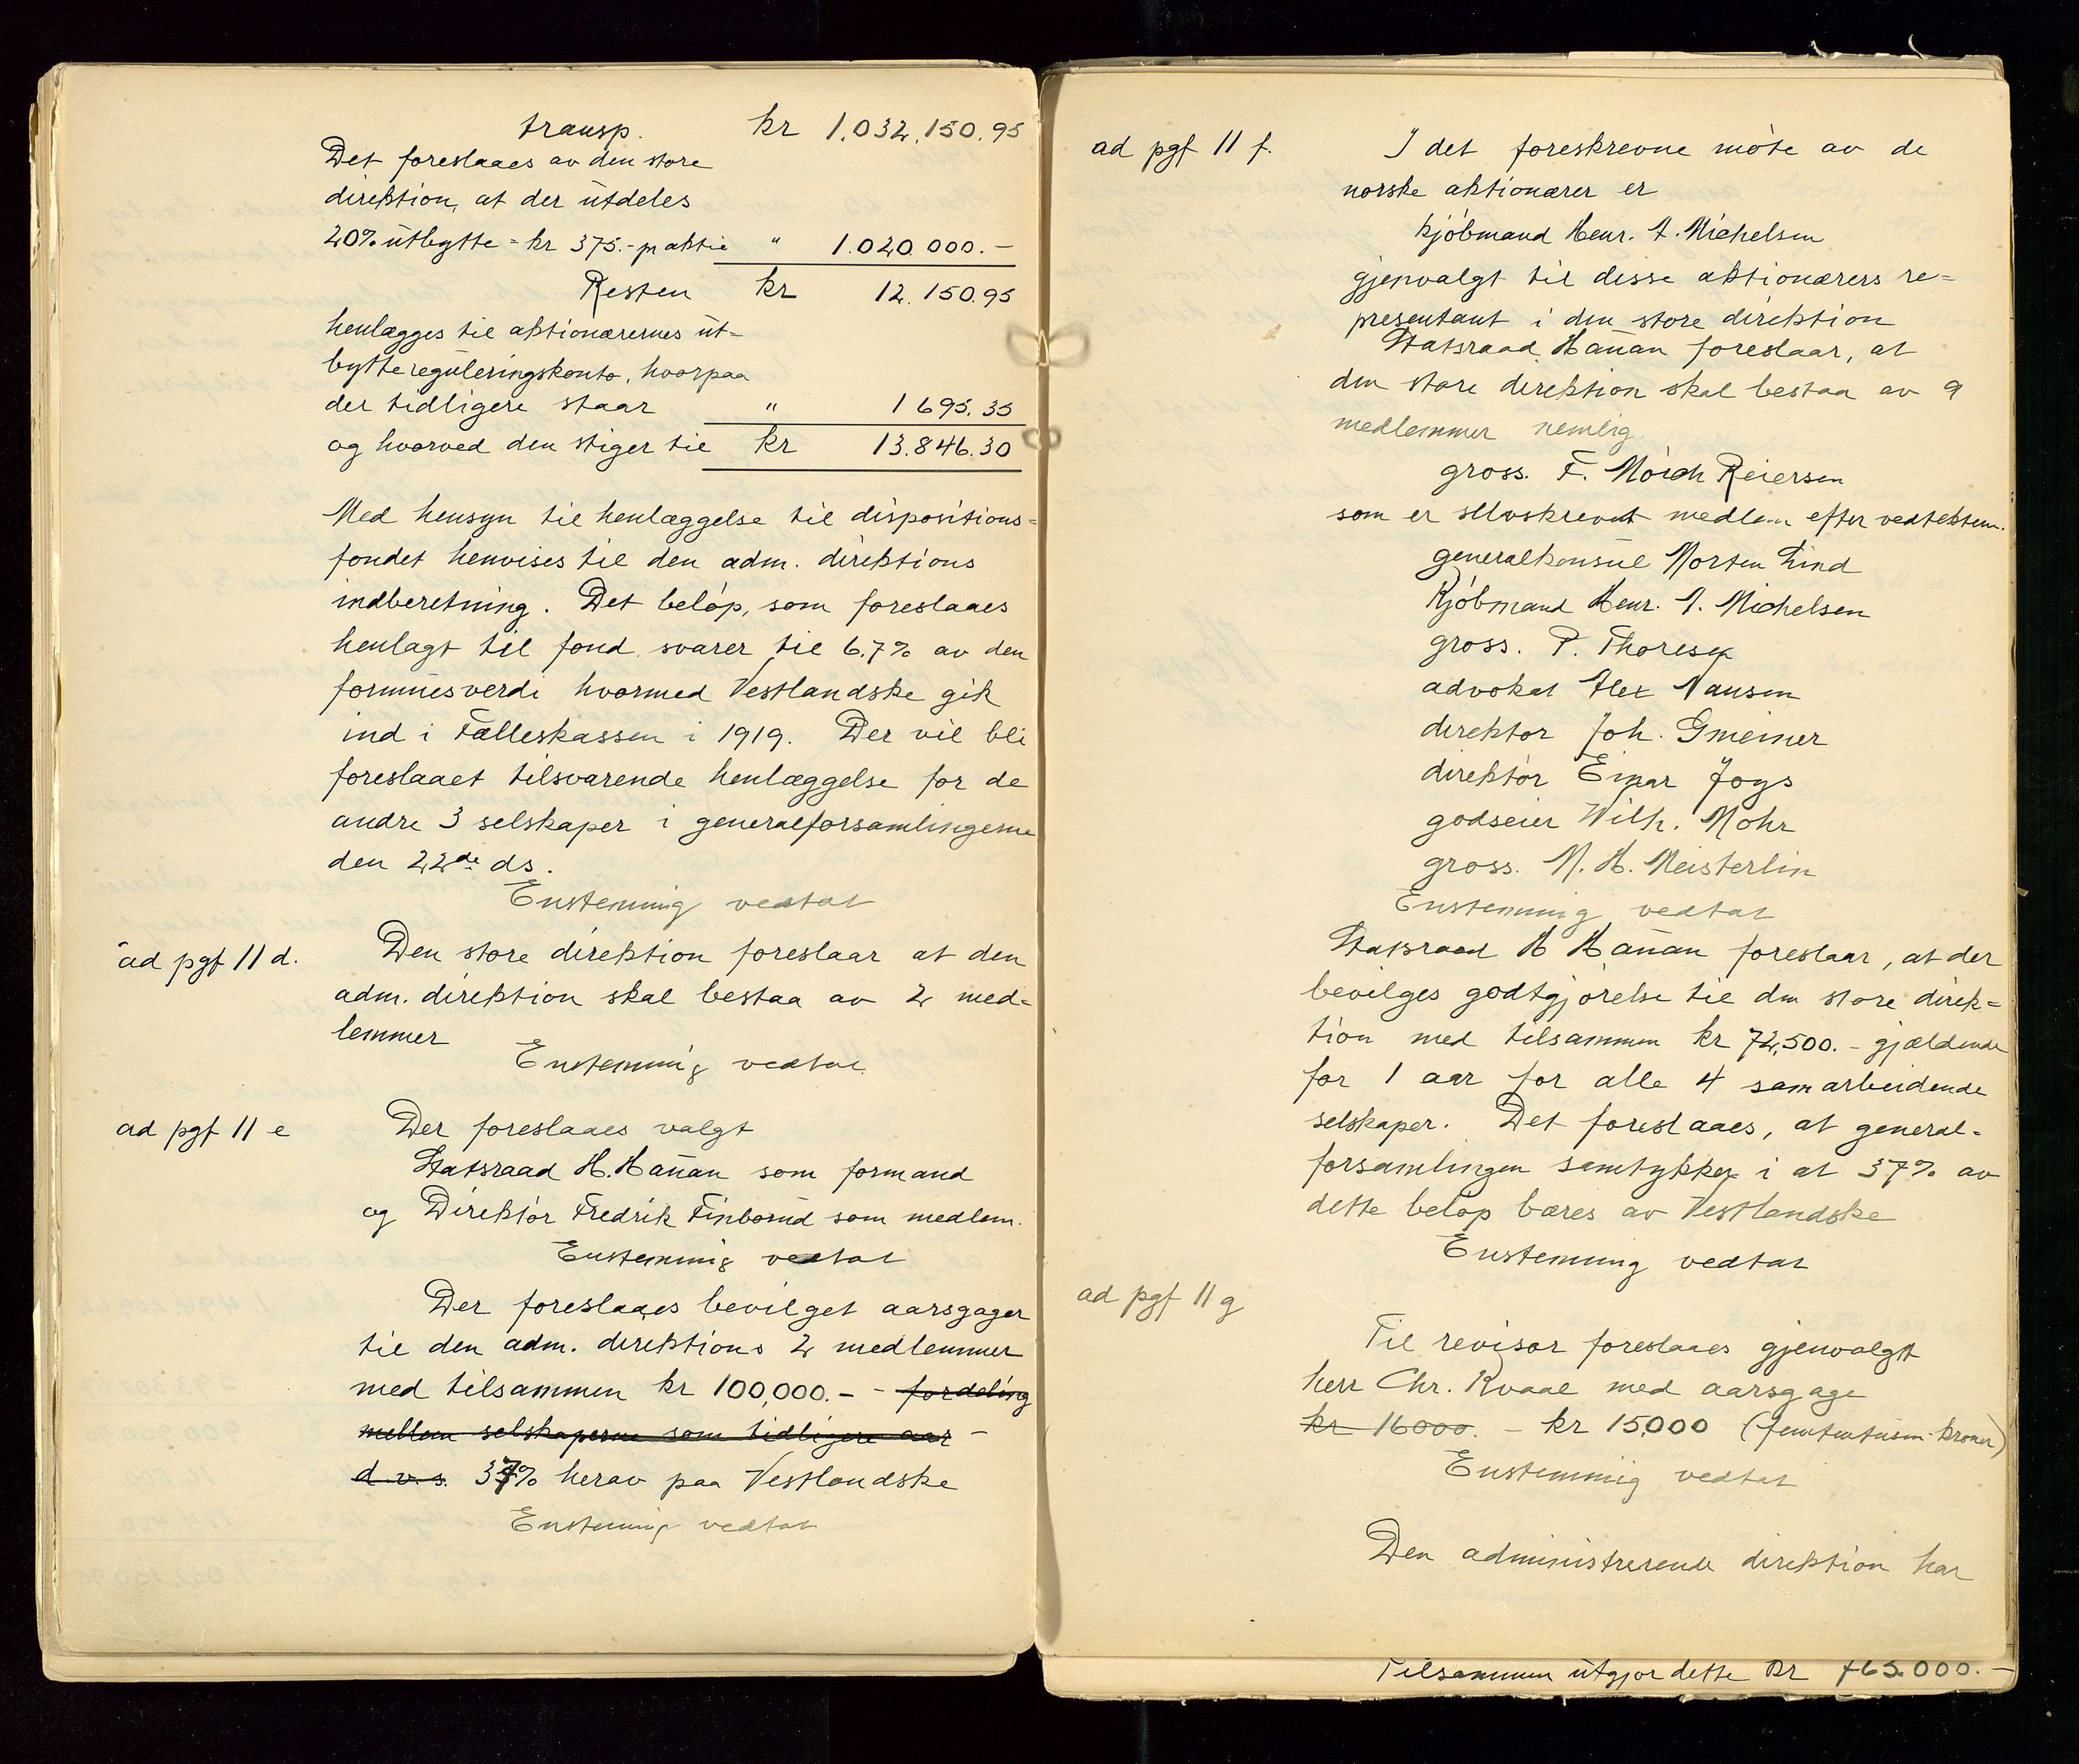 transp. kr 1.032.150.95
Det foreslaaes av den store
direktion, at der utdeles
20% utbytte = kr 375.- pr aktie " 1.020.000.-
Resten kr 12.150.95
henlægges til aktionærernes ut-
bytte reguleringskonto, hvorpaa
der tidligere staar " 1 695.35
og hvorved den stiger til kr 13.846.30
Med hensyn til henlæggelse til dispositions-
fondet henvises til den adm. direktions
indberetning. Det beløp, som foreslaaes
henlagt til fond svarer til 6.7% av den
formuesverdi hvormed Vestlandske gik
ind i Fælleskassen i 1919. Der vil bli
foreslaaet tilsvarende henlæggelse for de
andre 3 selskaper i generalforsamlingerne
den 22de ds.
Enstemmig vedtat
ad pgf 11 d. Den store direktion foreslaar at den
adm. direktion skal bestaa av 2 med-
lemmer
Enstemmig vedtat
ad pgf 11 e Der foreslaaes valgt
Statsraad H. Hauan som formand
og Direktør Fredrik Finborud som medlem.
Enstemmig vedtat
Der foreslaaes bevilget aarsgager
til den adm. direktions 2 medlemmer
med tilsammen kr 100,000.- - fordeling
mellem selskaperne som tidligere aar -
d.v.s. 37% herav paa Vestlandske
Enstemmig vedtat
ad pgf 11 f. I det foreskrevne møte av de
norske aktionærer er
kjøbmand Henr. A. Michelsen
gjenvalgt til disse aktionærers re-
presentant i den store direktion
Statsraad Hauan foreslaar, at
den store direktion skal bestaa av 9
medlemmer nemlig
gross. F. Mörch Reiersen
som er selvskrevent medlem efter vedtektene.
generalkonsul Morten Lind
Kjøbmand Henr. A. Michelsen
gross. P. Thoresen
advokat Alex Nansen
direktør Joh. Gmeiner
direktør Einar Jogs
godseier Wilh. Mohr
gross. N. H. Meisterlin
Enstemmig vedtat
Statsraad H Hauan foreslaar, at der
bevilges godtgjørelse til den store direk-
tion med tilsammen kr 72,500.- gjældende
for 1 aar for alle 4 samarbeidende
selskaper. Det foreslaaes, at general-
forsamlingen samtykker i at 37% av
dette beløp bæres av Vestlandske
Enstemmig vedtat
ad pgf 11 g
Til revisor foreslaaes gjenvalgt
herr Chr. Kvaal med aarsgage
kr 16000. - kr 15,000 (femtentusen kroner)
Enstemmig vedtat
Den administrerende direktion har
Tilsammen utgjør dette kr 765.000.-